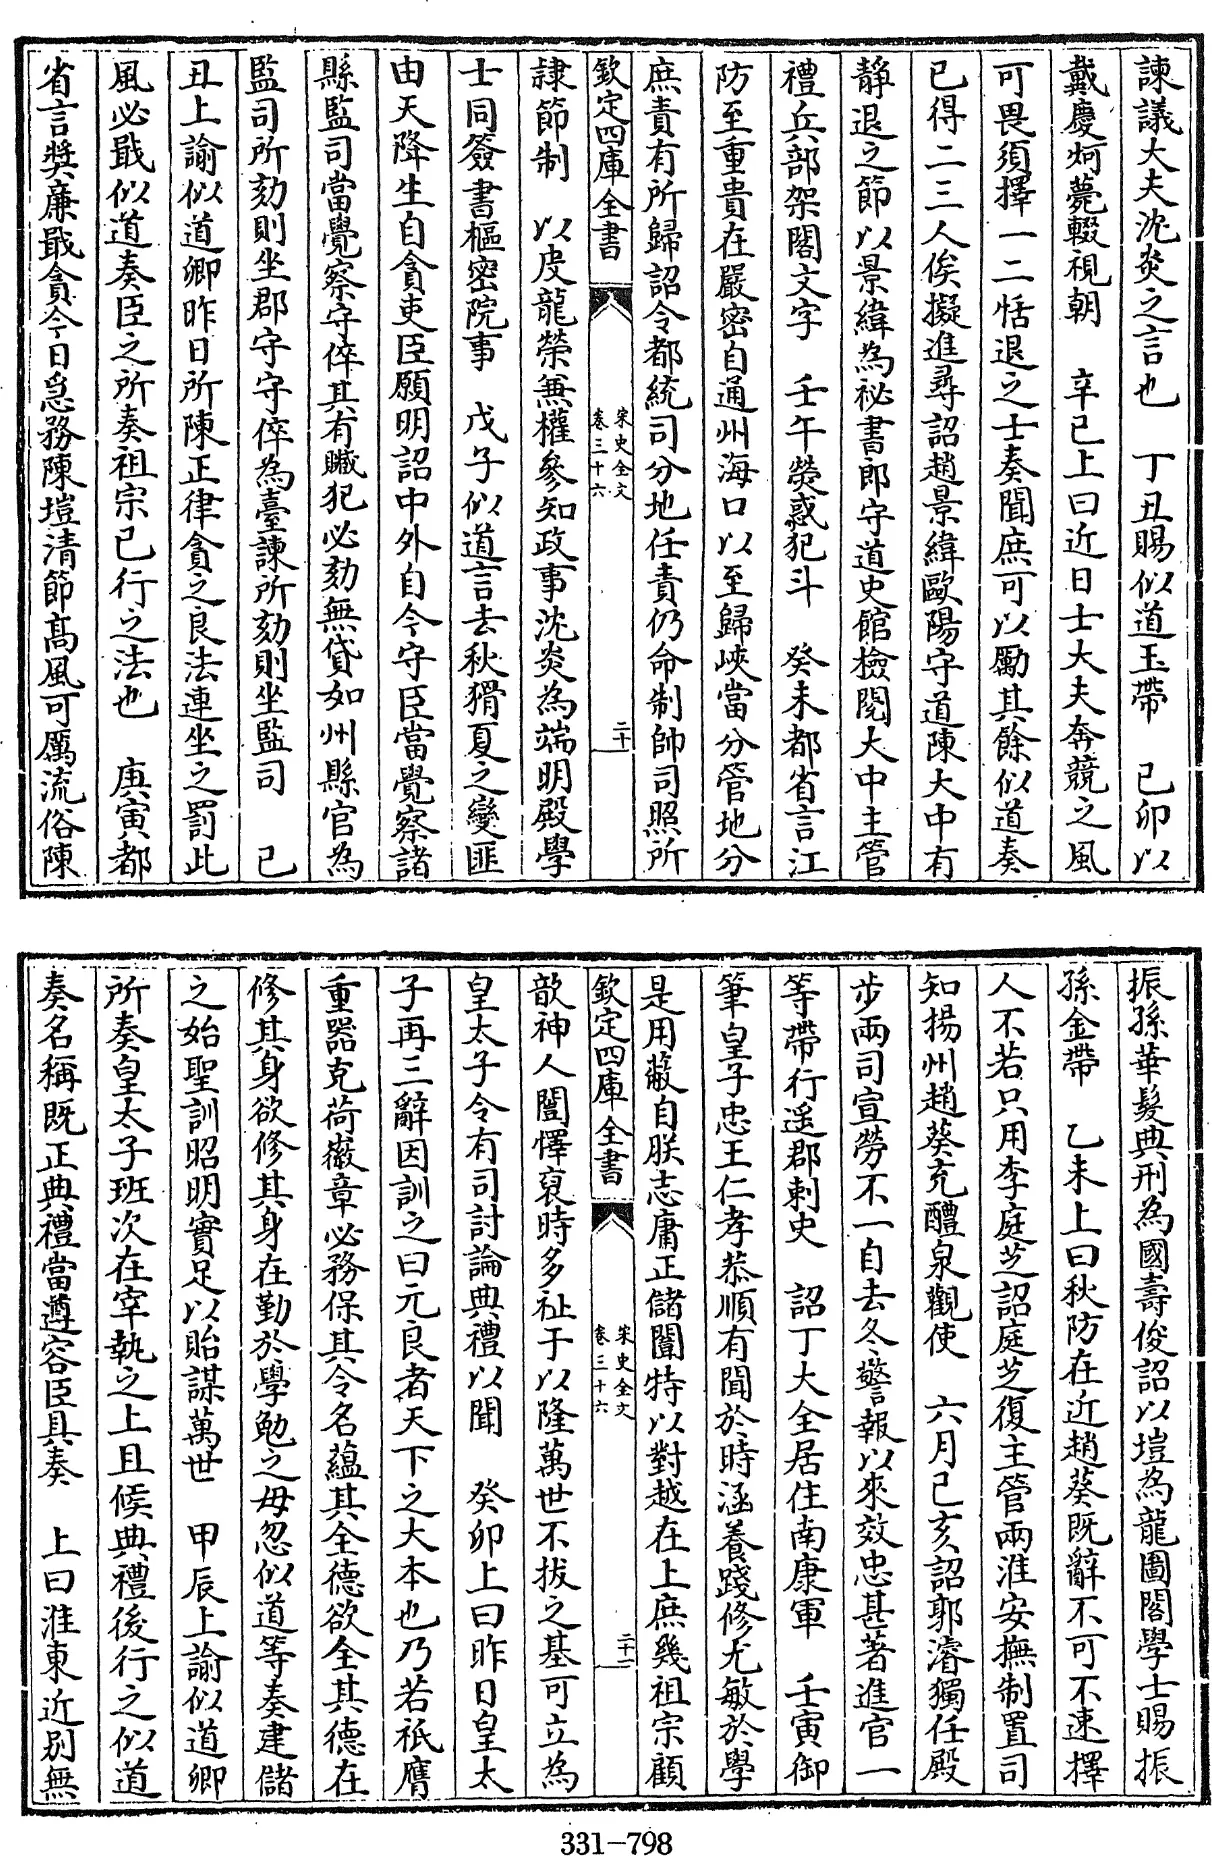 諫議大夫沈炎之言也　丁丑賜似道玉帶　己卯以
戴慶炣薨輟視朝　辛巳上曰近日士大夫奔競之風
可畏須擇一二恬退之士奏聞庶可以勵其餘似道奏
已得二三人俟擬進尋詔趙景緯歐陽守道陳大中有
靜退之節以景緯為祕書郎守道史館檢閱大中主管
禮兵部架閣文字　壬午熒惑犯斗　癸未都省言江
防至重貴在嚴密自通州海口以至歸峽當分管地分
庶責有所歸詔令都統司分地任責仍命制帥司照所
欽定四庫全書
宋史全文
卷三十六
二十
隸節制　以皮龍榮無權參知政事沈炎為端明殿學
士同簽書樞密院事　戊子似道言去秋猾夏之變匪
由天降生自貪吏臣願明詔中外自今守臣當覺察諸
縣監司當覺察守倅其有贓犯必劾無貸如州縣官為
監司所劾則坐郡守守倅為臺諫所劾則坐監司　己
丑上諭似道卿昨日所陳正律貪之良法連坐之罰此
風必戢似道奏臣之所奏祖宗已行之法也　庚寅都
省言奬廉戢貪今日急務陳塏清節高風可厲流俗陳
振孫華髮典刑為國壽俊詔以塏為龍圖閣學士賜振
孫金帶　乙未上曰秋防在近趙葵既辭不可不速擇
人不若只用李庭芝詔庭芝復主管兩淮安撫制置司
知揚州趙葵充醴泉觀使　六月己亥詔郭濬獨任殿
步兩司宣勞不一自去冬警報以來效忠甚著進官一
等帶行遥郡刺史　詔丁大全居住南康軍　壬寅御
筆皇子忠王仁孝恭順有聞於時涵養踐修尤敏於學
是用蔽自朕志庸正儲闈特以對越在上庶幾祖宗顧
欽定四庫全書
宋史全文
卷三十六
二十一
歆神人闓懌裒時多祉于以隆萬世不拔之基可立為
皇太子令有司討論典禮以聞　癸卯上曰昨日皇太
子再三辭因訓之曰元良者天下之大本也乃若祇膺
重器克荷徽章必務保其令名蘊其全德欲全其德在
修其身欲修其身在勤於學勉之毋忽似道等奏建儲
之始聖訓昭明實足以貽謀萬世　甲辰上諭似道卿
所奏皇太子班次在宰執之上且候典禮後行之似道
奏名稱既正典禮當遵容臣具奏　上曰淮東近别無
331-798